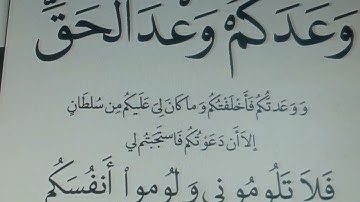 وَعَدَكُمْ وَعْدَ الْحَقِّ
وَوَعَدتُّكُمْ فَأَخْلَفْتُكُمْ وَمَا كَانَ لِيَ عَلَيْكُم مِن سُلْطَانٍ
إِلَّا أَن دَعَوْتُكُمْ فَاسْتَجَبْتُمْ لِي
فَلَا تَلُومُونِي وَلُومُوا أَنفُسَكُم